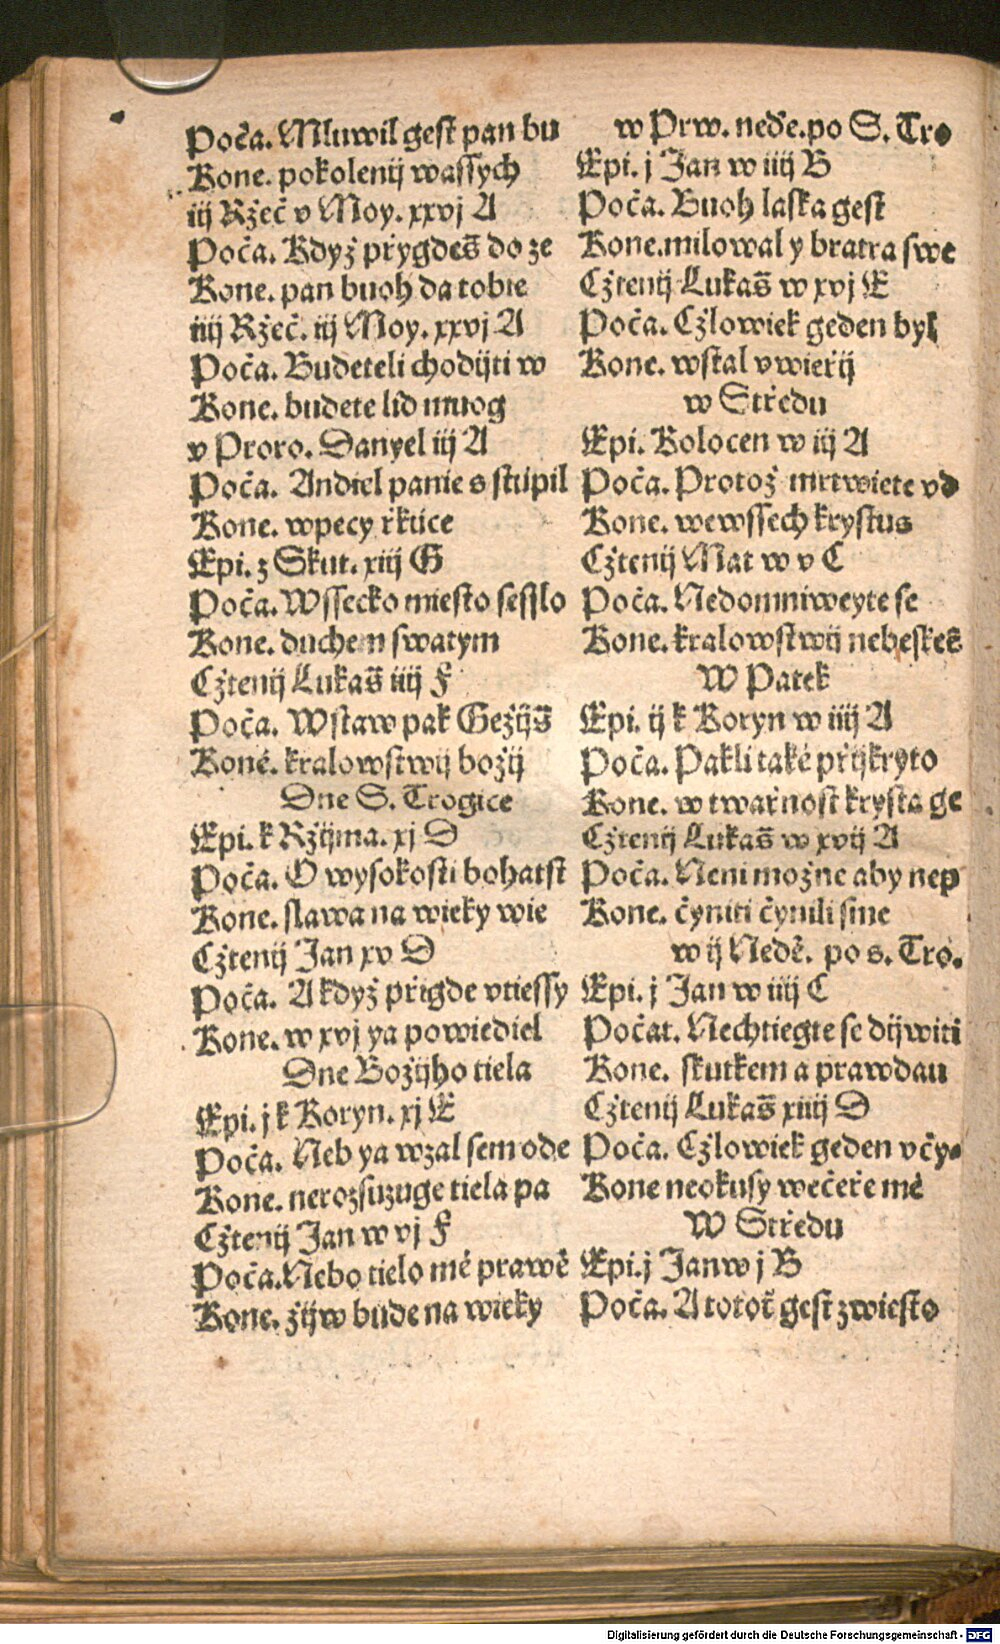 Poča. Mluwil gest pan bu
Kone. pokolenij wassych
iij Rżeč v Moy. xxvj A
Poča. Kdyż přygdeš do ze
Kone. pan buoh da tobie
iiij Rżeč. iij Moy. xxvj A
Poča. Budeteli chodijti w
Kone. budete lid muog
v Proro. Danyel iij A
Poča. Andiel panie s stupil
Kone. wpecy řkuce
Epi. z Skut. xiij G
Poča. Wssecko miesto sesslo
Kone. duchem swatym
Cżtenij Lukaš iiij F
Poča. Wstaw pak Geżijš
Koné. kralowstwij bożij
Dne S. Trogice
Epi. k Rżijma. xj D
Poča. O wysokosti bohatst
Kone. slawa na wieky wie
Cżtenij Jan xv D
Poča. A kdyż přigde vtiessy
Kone. w xvj ya powiediel
Dne Bożijho tiela
Epi. j k Koryn. xj E
Poča. Neb ya wzal sem ode
Kone. nerozsuzuge tiela pa
Cżtenij Jan w vj F
Poča. Nebo tielo mé prawě
Kone. żijw bude na wieky
w Prw. neďe. po S. Tro
Epi. j Jan w iiij B
Poča. Buoh laska gest
Kone. milowal y bratra swe
Cżtenij Lukaš w xvj E
Poča. Cżlowiek geden byl
Kone. wstal vwieřij
w Středu
Epi. Kolocen w iij A
Poča. Protoż mrtwiete vd
Kone. wewssech krystus
Cżtenij Mat w v C
Poča. Nedomniweyte se
Kone. kralowstwij nebeskeš
W Patek
Epi. ij k Koryn w iiij A
Poča. Pakli také přijkryto
Kone. w twařnost krysta ge
Cżtenij Lukaš w xvij A
Poča. Neni możne aby nep
Kone. čyniti čynili sme
w ij Nedě. po s. Tro.
Epi. j Jan w iiij C
Počat. Nechtiegte se dijwiti
Kone. skutkem a prawdau
Cżtenij Lukaš xiiij D
Poča. Cżlowiek geden včy-
Kone neokusy wečeře mé
W Středu
Epi. j Jan w j B
Poča. A totoť gest zwiesto
Digitalisierung gefördert durch die Deutsche Forschungsgemeinschaft - DFG